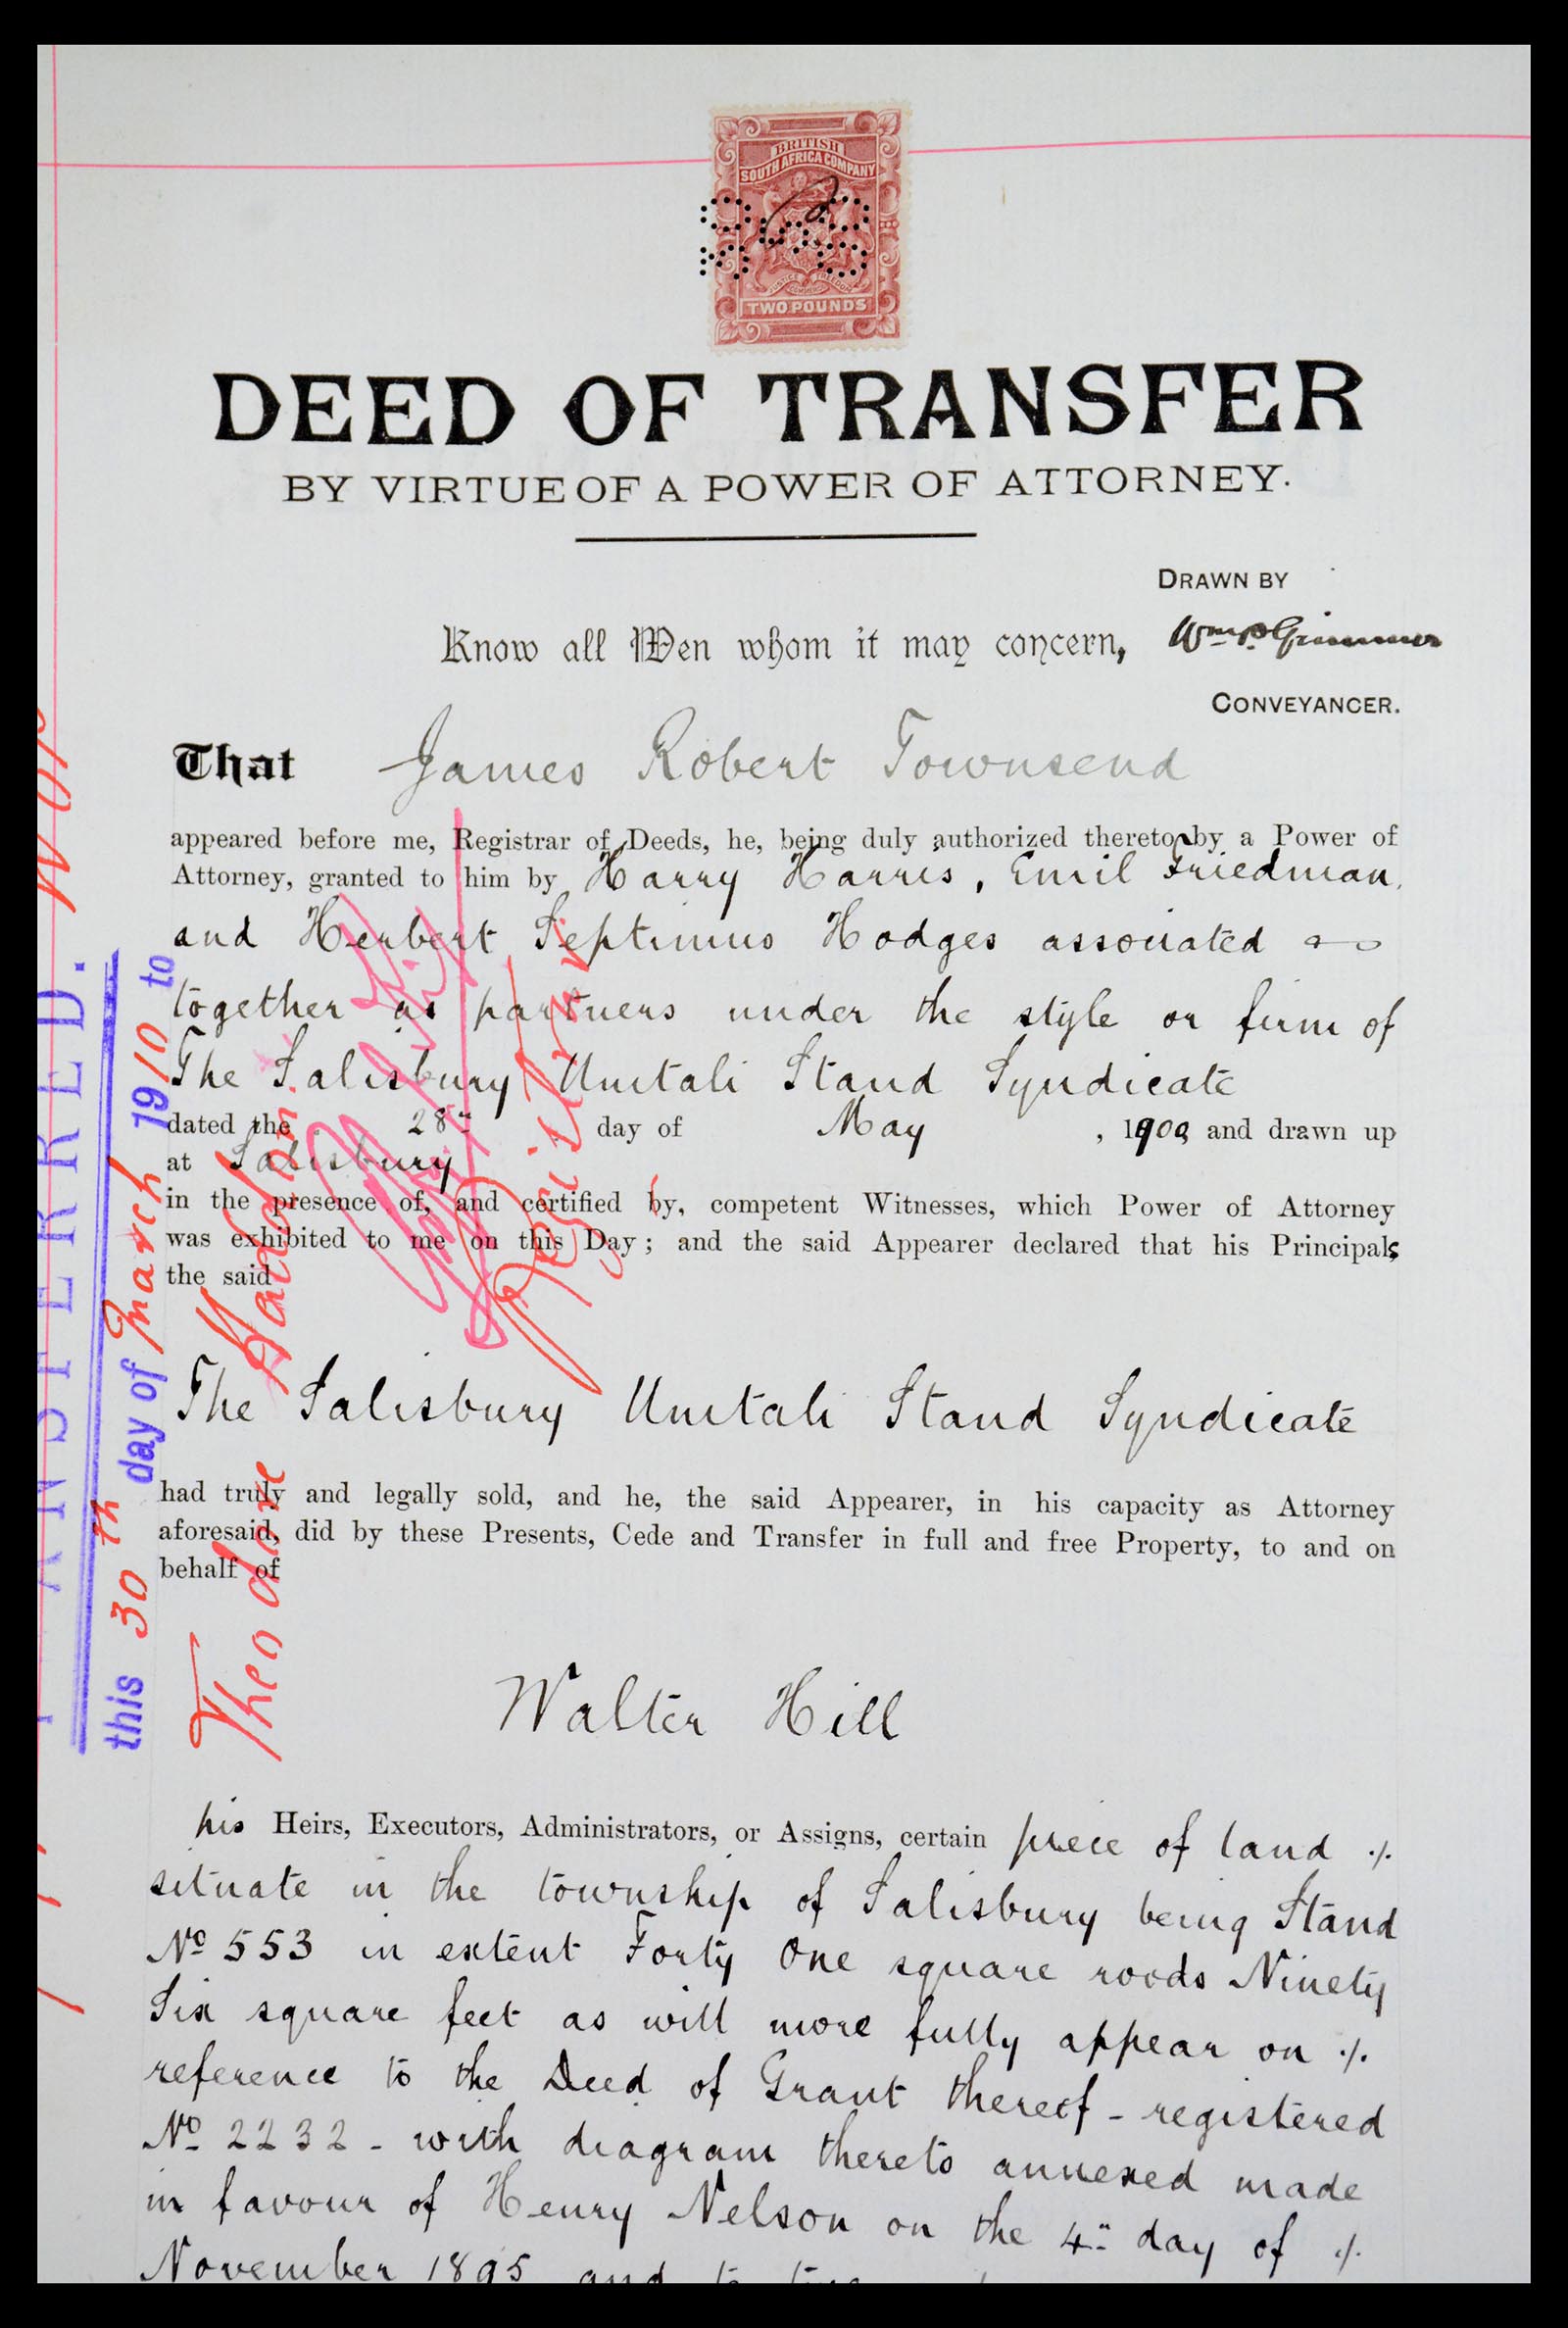 BRITISH
SOUTH AFRICA COMPANY
JUSTICE FREEDOM
TWO POUNDS
DEED OF TRANSFER
BY VIRTUE OF A POWER OF ATTORNEY.
DRAWN BY
Know all Men whom it may concern,
CONVEYANCER.
That James Robert Townsend
appeared before me, Registrar of Deeds, he, being duly authorized thereto by a Power of
Attorney, granted to him by Harry Harris, Emil Friedman,
and Herbert Septimus Hodges associated
together as partners under the style or firm of
The Salisbury Umtali Stand Syndicate
dated the 28th day of May, 1900 and drawn up
at Salisbury
in the presence of, and certified by, competent Witnesses, which Power of Attorney
was exhibited to me on this Day; and the said Appearer declared that his Principals
the said
The Salisbury Umtali Stand Syndicate
had truly and legally sold, and he, the said Appearer, in his capacity as Attorney
aforesaid, did by these Presents, Cede and Transfer in full and free Property, to and on
behalf of
Walter Hill
his Heirs, Executors, Administrators, or Assigns, certain piece of land ./.
situate in the township of Salisbury being Stand
No 553 in extent Forty One square roods Ninety
Six square feet as will more fully appear on ./.
reference to the Deed of Grant thereof - registered
No 2232 - with diagram thereto annexed made
in favour of Henry Nelson on the 4th day of ./.
November 1895 and
TRANSFERRED.
this 30th day of March 1910 to
Theodore
Registrar